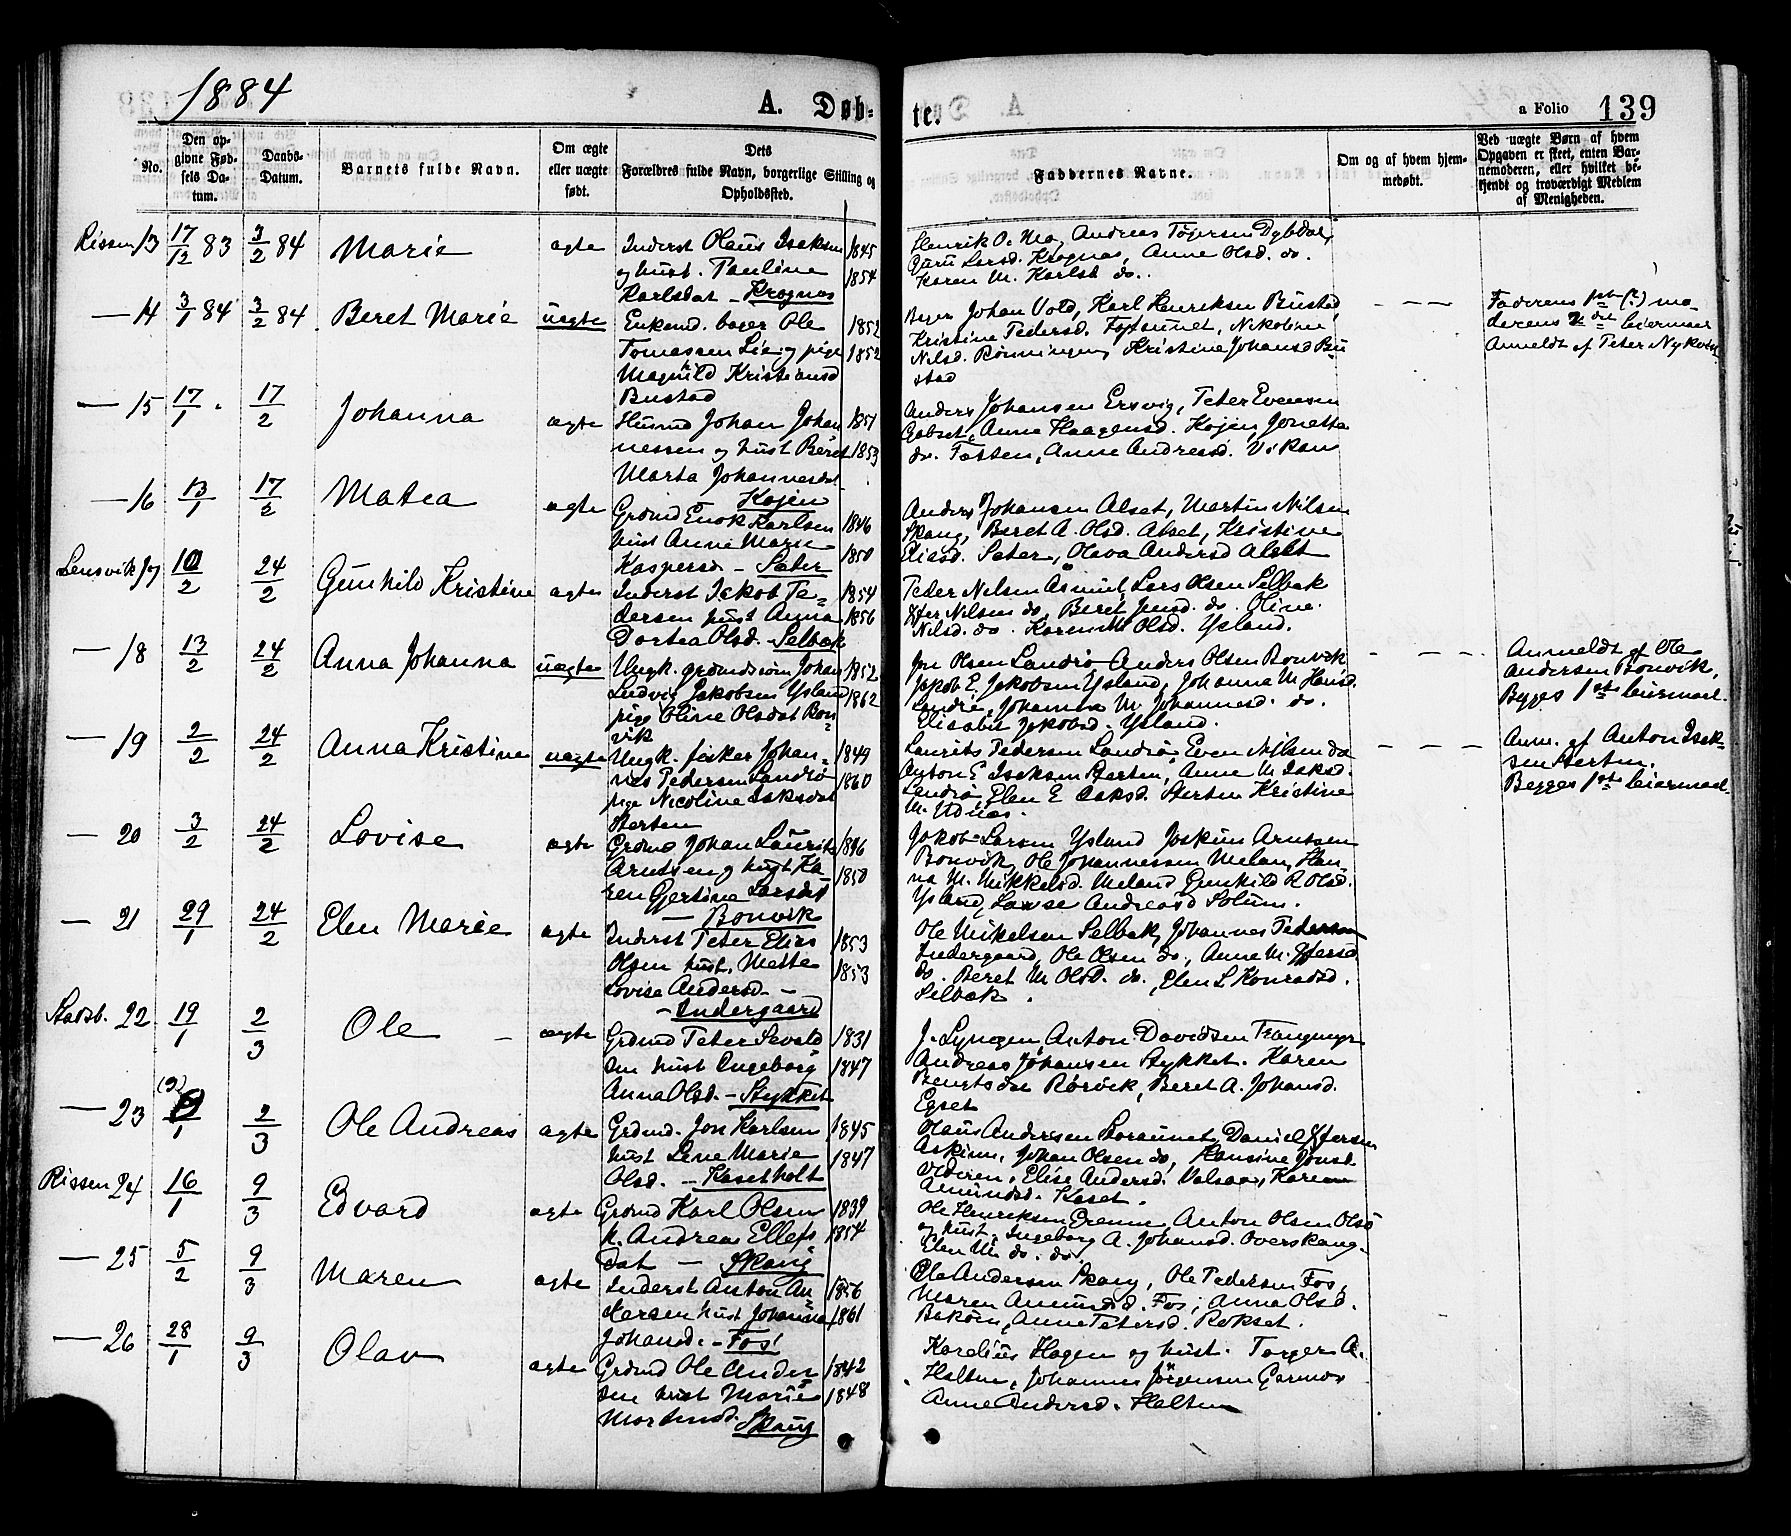 1884
A. Døb-
te.
a Folio 139
No.
Den op-
givne Fød-
sels Da-
tum.
Daabs-
Datum.
Barnets fulde Navn.
Om ægte
eller uægte
født.
Dets
Forældres fulde Navn, borgerlige Stilling og
Opholdssted.
Faddernes Navne.
Om og af hvem hjem-
medøbt.
Ved uægte Børn af hvem
Opgaven er skeet, enten Bar-
nemoderen, eller hvilket be-
kjendt og troværdigt Medlem
af Menigheden.
Rissen 13 17/12 83 3/2 84 Marie ægte
Inderst Olaus Isaksen 1845
og hust. Pauline 1854
Karlsdat - Krognes
Henrik O. Mo, Andreas Tøgersen Dybdal,
Guru Larsd. Krognes, Anne Olsd. do.
Karen M. Karlsd do.
— 14 3/1 84 3/2 84 Beret Marie uægte
Enkemd. bager Ole 1852
Tomassen Lie og pige 1852
Magnild Kristiansd
Bustad
Johan Vold, Karl Henriksen Bustad,
Kristine Pedersd. Nikoline
Nilsd. Rønningen, Kristine Johansd Bu
stad
— — —
Faderens 1ste (?) mo
derens 2det leiermaal
Anmeldt af Peter
— 15 17/1 17/2 Johanna ægte
Husmd Johan Johan 1851
nessen og hust Beret 1853
Marta Johannesdat
Kojen
Anders Johansen Ersvig, Peter Evensen
Anne Haagensd. Kojen, Jonetta
do. Anne Andreasd. Viken
— 16 13/1 17/2 Matea ægte
Grdmd Enok Karlsen 1846
hust Anne Marie 1850
Kaspersd - Sæter
Anders Johansen Alset, Martin Nilsen
Skaug, Beret A. Olsd. Alset, Kristine
Eliasd. Sæter, Olava Andersd Alset
Lensvik 17 10/2 24/2 Gunhild Kristine ægte
Inderst Jakob Pe- 1854
dersen hust Anna 1856
Dortea Olsd. - Selbæk
Peder Nilsen Lars Olsen Selbæk
Nilsen do, Beret do. Oline
Nilsd. do. Karen M Olsd. Ysland.
— 18 13/2 24/2 Anna Johanna uægte
Ungk. grdmdssøn Johan 1852
Ludvig Jakobsen Ysland 1862
pige Oline Olsdat Bon-
vik
Jon Olsen Landrø Anders Olsen Bonvik
Jakob E. Jakobsen Ysland, Johanna M Hansd.
Landrø, Johanna M Johannesd. do.
Elisabet Jakobsd. Ysland.
— — —
Anmeldt af Ole
Andersen Bonvik,
Begges 1ste leiermaal.
— 19 2/2 24/2 Anna Kristine uægte
Ungk. fisker Johan- 1849
nes Pedersen Landrø 1860
pige Nicoline Isaksdat
Sterten
Laurits Pedersen Landrø, Even Nilsen do
Anton E Isaksen Sterten, Anne M Isaksd.
Landrø, Elen E Isaksd. Sterten Kristine
M. Udnæs.
— — —
Anm. af Anton Isak-
sen Sterten.
Begges 1ste leiermaal.
— 20 3/2 24/2 Lovise ægte
Grdmd Johan Laurits 1846
Arntsen og hust Ka 1850
ren Gjertine Larsdat
— Bonvik
Jakob Larsen Ysland Joakim Arntsen
Bonvik, Ole Johannessen Meland, Han
na M. Mikkelsd. Meland Gunhild R Olsd.
Ysland, Lovise Andreasd Solum.
— 21 29/1 24/2 Elen Marie ægte
Inderst Peter Elias 1853
Olsen hust. Mette 1853
Lovise Andersd. -
- Indergaard
Ole Mikelsen Selbæk, Johannes Pedersen
Indergaard, Ole Olsen do, Anne M.
do. Beret M Olsd. do. Elen L Konradsd.
Selbæk.
Stadsb. 22 19/1 2/3 Ole - ægte
Grdmd Peter Sevald 1831
sen hust Ingeborg 1847
Anna Olsd. - Stykket
J. Lyngen, Anton Davidsen Trangmyr
Andreas Johansen Stykket. Karen
Bengtsdat Rørvik, Beret A. Johansd.
Egset
— 23 (9) /1 2/3 Ole Andreas ægte
Grdmd. Jon Karlsen 1845
hust Lene Marie 1847
Olsd. - Kasetholt
Olaus Andersen Daniel
Askim, Johan Olsen do, Hansine Jonsd.
Elise Andersd. Valsaa, Karen
Amundsd. Kaset.
Rissen 24 16/1 9/3 Edvard ægte
Grdmd Karl Olsen 1839
h. Andreas Ellefs 1854
dat - Skaug
Ole Henriksen Grønne, Anton Olsen Olsø
og hust, Ingeborg A. Johansd. Overskaug.
Elen M. do. do.
— 25 5/2 9/3 Maren ægte
Inderst Anton An 1856
dersen hust Johanna 1861
Johansd. - Fos
Ole Andersen Skaug, Ole Pedersen Fos,
Maren Amundsd. Fos, Anna Olsd.
Anne Petersd. Rokset.
— 26 28/1 9/3 Olav ægte
Grdmd Ole Ander 1842
sen hust Marie 1848
Mortensd. Skaug
Karelius Hagen og hust. Torger A.
Halten, Johannes Jørgensen Germox
Anne Andersd. Halten